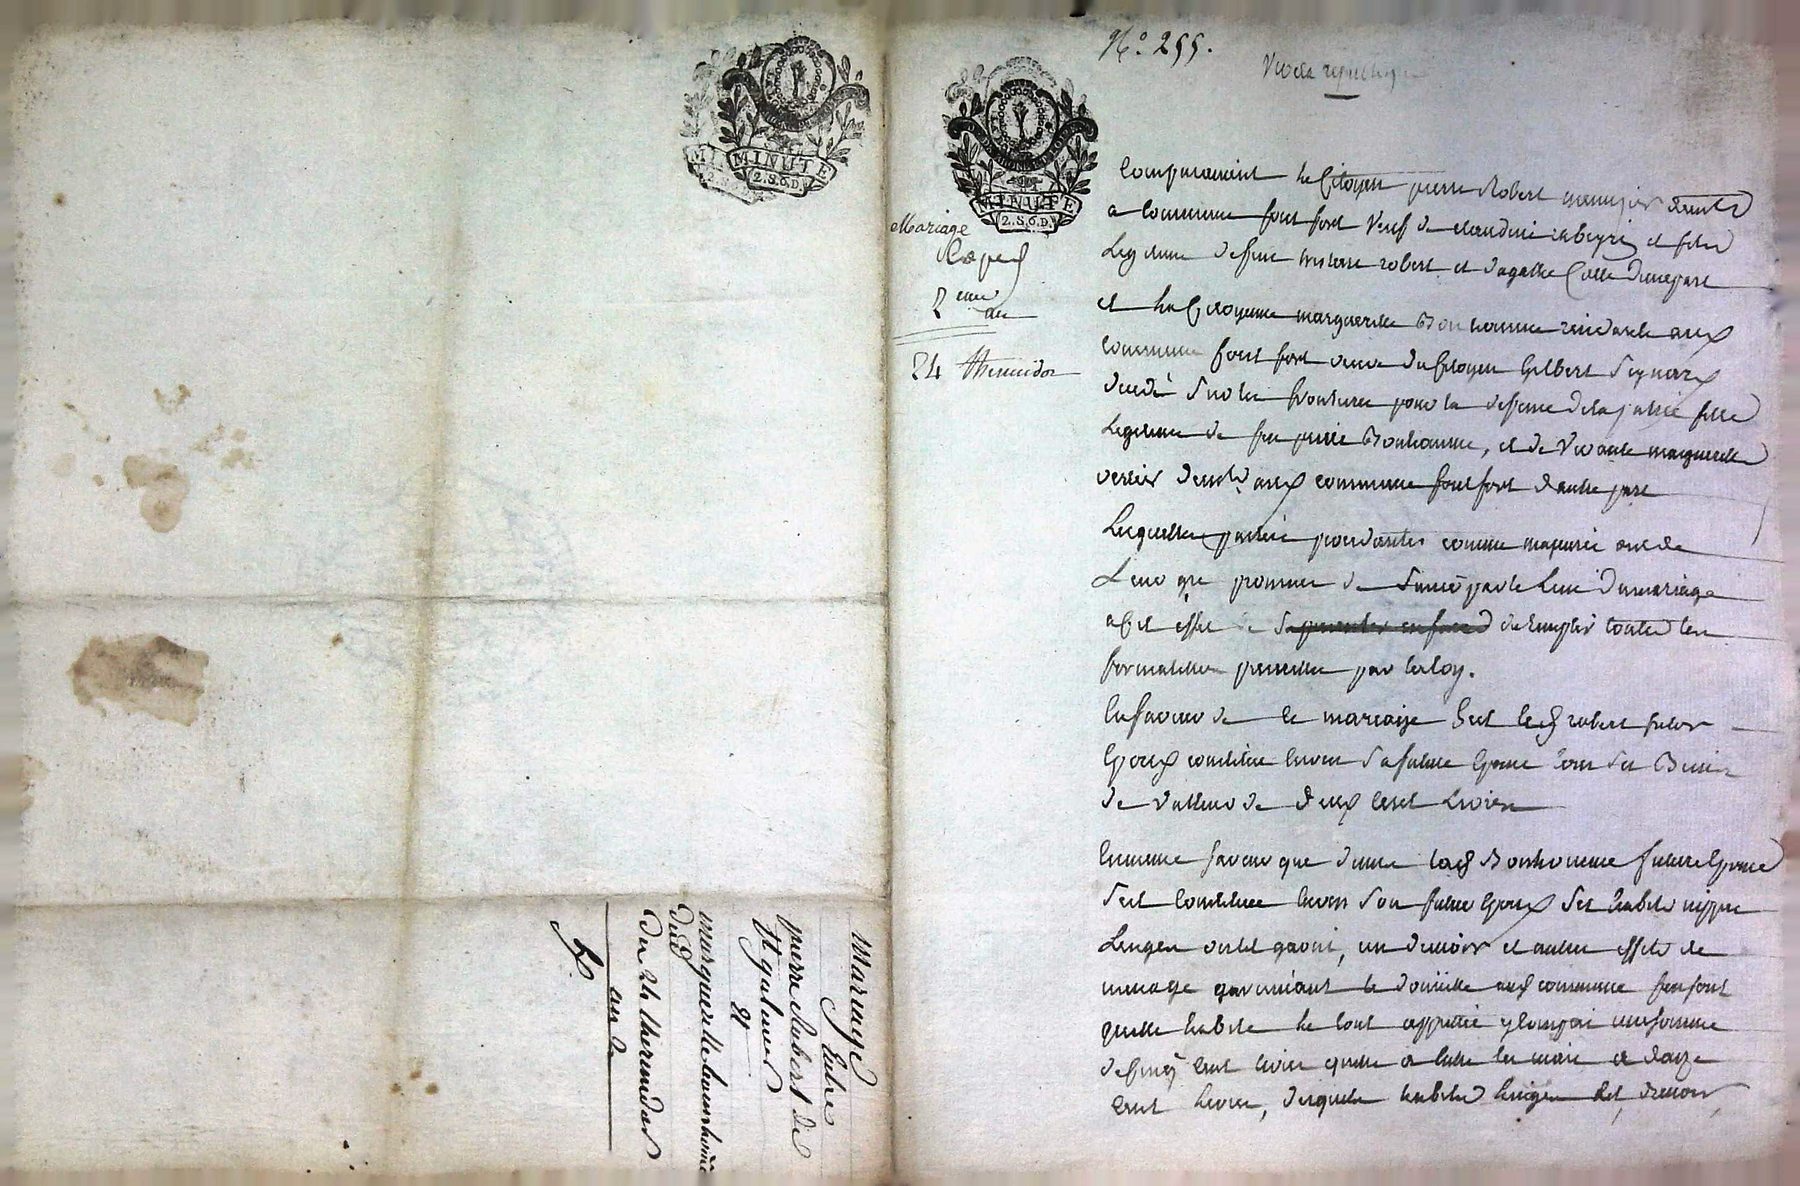 MINUTE
2.S.6.D.
mariage
Entre
pierre Robert de
St galmier
et
marguerittebounhome
dud
du 24 thermidor
an 2e
N.° 255.
Vive la republique
MINUTE
2.S.6.D.
Mariage
Expé
2eme
24 thermidor
Comparaissent le Citoyen pierre Robert menuisier
a commune font fort veuf de claudine et fils
Legitime deffunt robert et dagathe Colle dunepart
et la Citoyenne margueritte Bonhomme residante aux
commune font fort veuve du Citoyen Gilbert
decedé sur les frontieres pour la deffense dela patrie fille
Legitime de feu pierre Bonhomme, et de vivante margueritte
verrier commune fontfort dautre part
Lesquelles parties procedantes comme majeures ont de
Leur gré promis de Sunir par le Lien dumariage
a Cet effet de de remplir toutes les
formalités prescrittes par la loy.
En faveur de ce mariage Sest le C robert futur
Epoux constitué envers Sa future Epouse tous ses Biens
de valleur de deux cent Livres
En meme faveur que dessus la C Bonhomme future Epouse
Sest Constituée envers Son futur Epoux Ses habits nippes
Linges garni, un dressoir et autres effets de
menage garnissant le domicille commune fonfort
quelle habite le tout apprecié y compris une somme
de Cinq cent livres quelle a entre les mains a douze
cent Livres, desquels habits Linges Lit, dressoir,